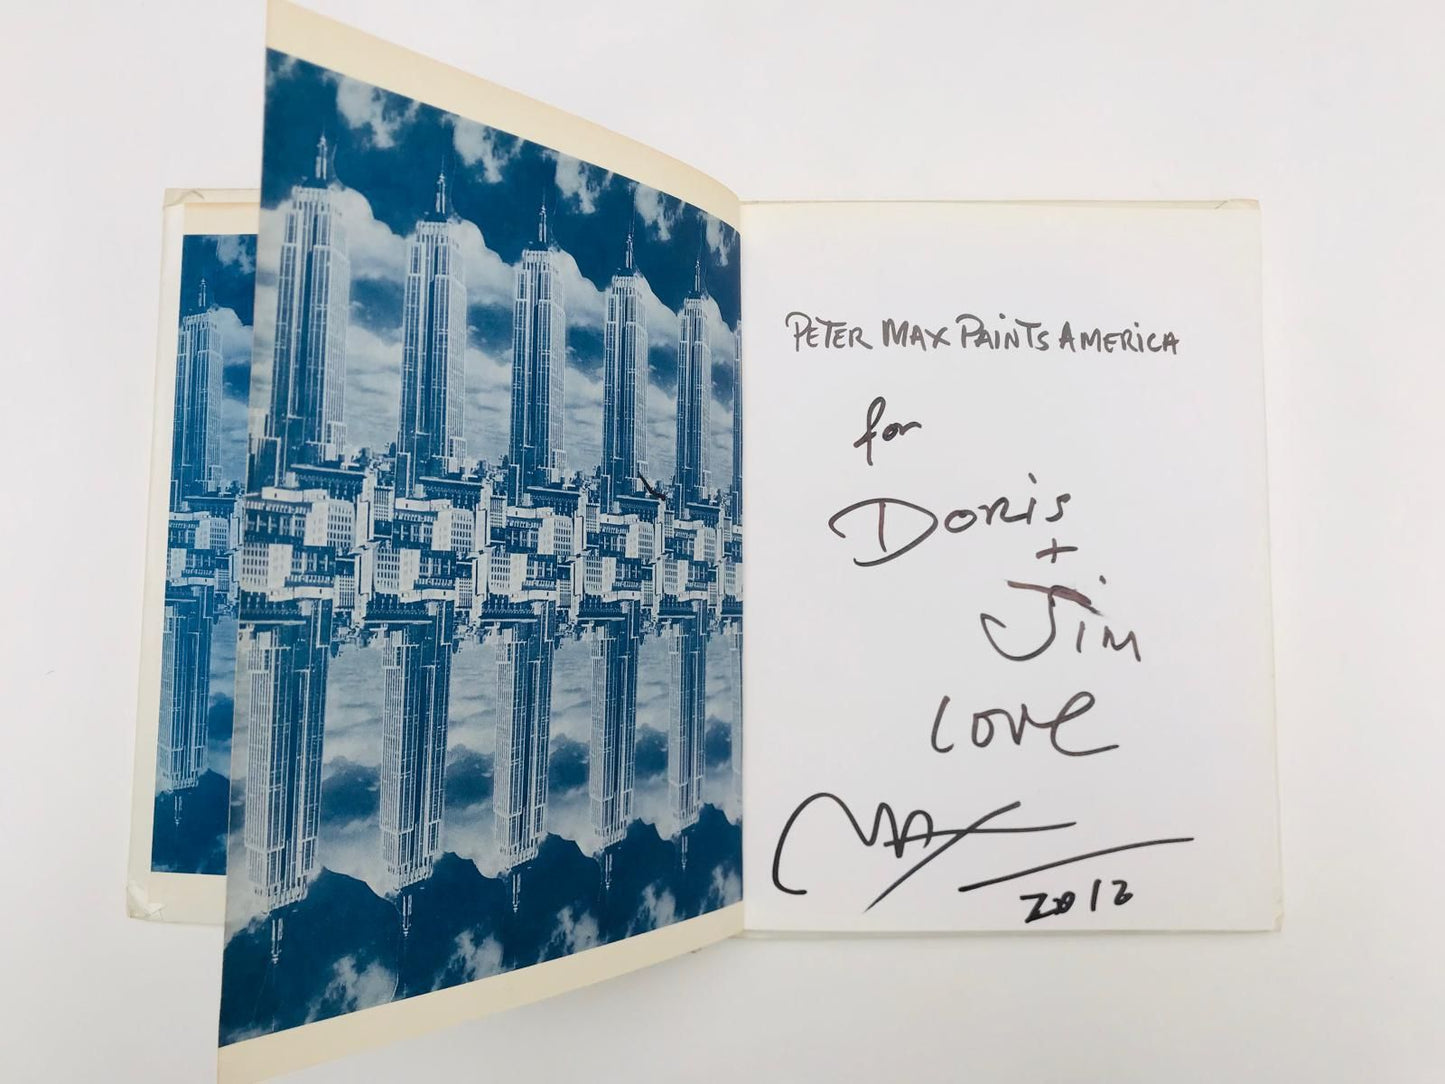 PETER MAX PAINTS AMERICA
for
Doris
+
Jim
Love
MAX
2012